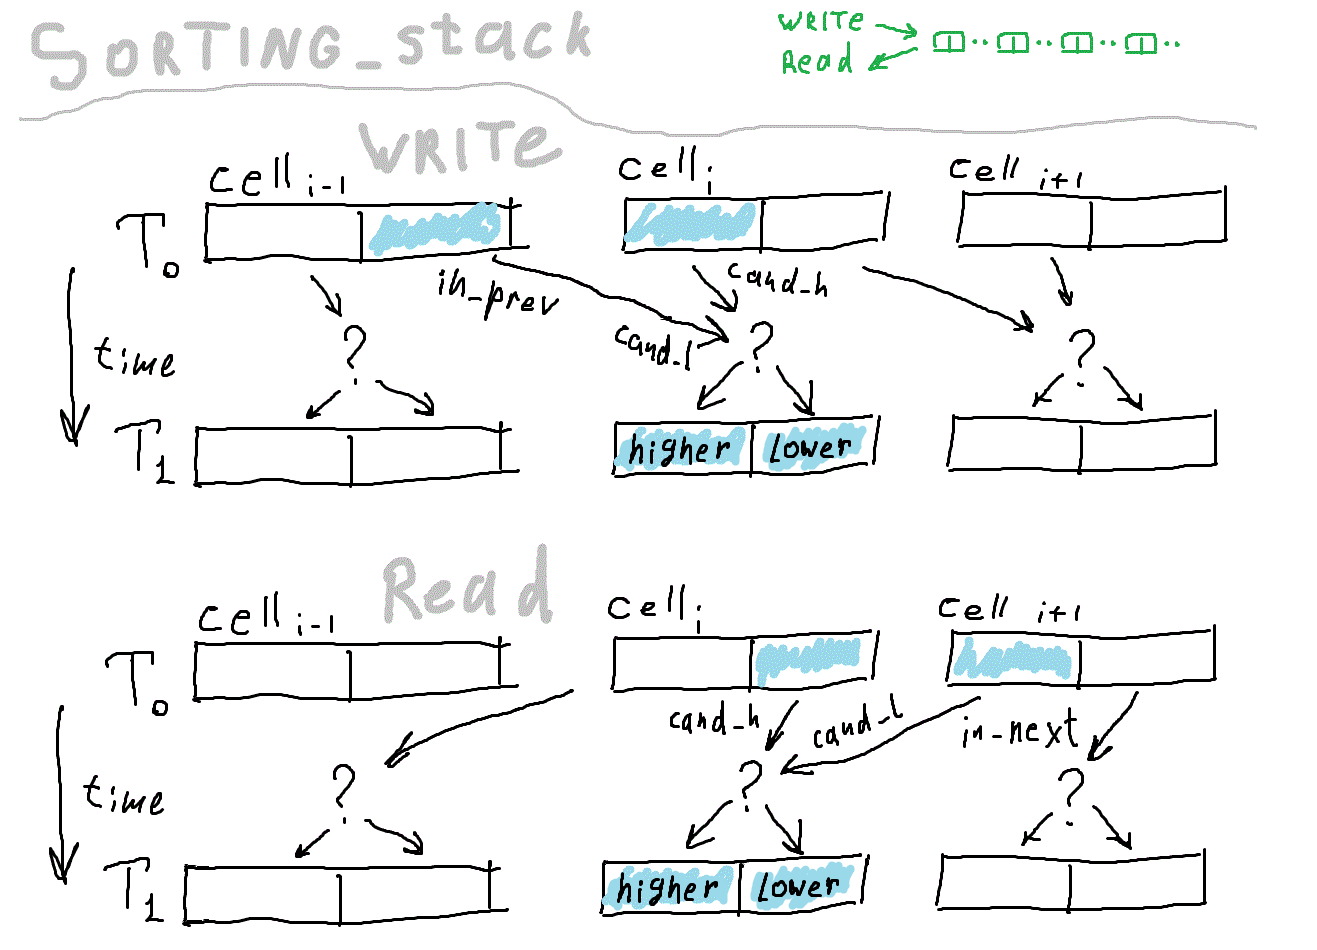 SORTING_stack
WRITE
Read
WRITE
cell i-1
cell i
cell i+1
T0
in_prev
cand_h
cand_l
?
?
?
time
T1
higher
lower
Read
cell i-1
cell i
cell i+1
T0
cand_h
cand_l
in-next
?
?
?
time
T1
higher
lower